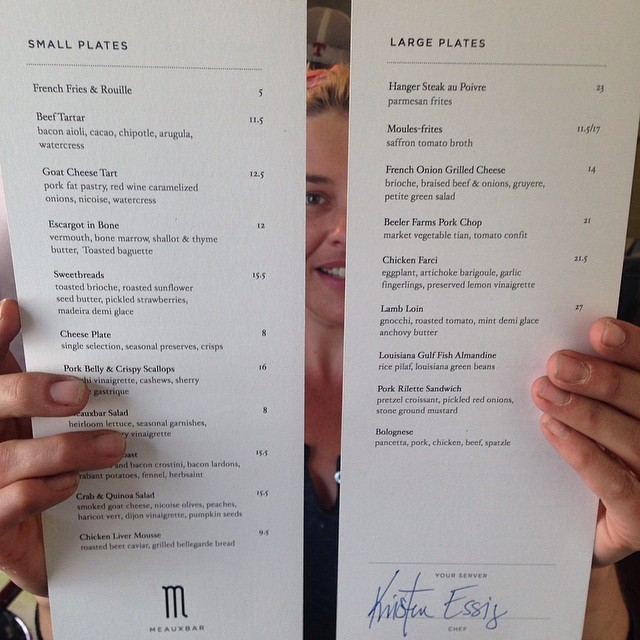 SMALL PLATES
French Fries & Rouille 5
Beef Tartar 11.5
bacon aioli, cacao, chipotle, arugula,
watercress
Goat Cheese Tart 12.5
pork fat pastry, red wine caramelized
onions, nicoise, watercress
Escargot in Bone 12
vermouth, bone marrow, shallot & thyme
butter, Toasted baguette
Sweetbreads 15.5
toasted brioche, roasted sunflower
seed butter, pickled strawberries,
madeira demi glace
Cheese Plate 8
single selection, seasonal preserves, crisps
Pork Belly & Crispy Scallops 16
vinaigrette, cashews, sherry
gastrique
Meauxbar Salad 8
heirloom lettuce, seasonal garnishes,
vinaigrette
15.5
and bacon crostini, bacon lardons,
potatoes, fennel, herbsaint
Crab & Quinoa Salad 15.5
smoked goat cheese, nicoise olives, peaches,
haricot vert, dijon vinaigrette, pumpkin seeds
Chicken Liver Mousse 9.5
roasted beet caviar, grilled bellegarde bread
m
MEAUXBAR
T
LARGE PLATES
Hanger Steak au Poivre 23
parmesan frites
Moules-frites 11.5/17
saffron tomato broth
French Onion Grilled Cheese 14
brioche, braised beef & onions, gruyere,
petite green salad
Beeler Farms Pork Chop 21
market vegetable tian, tomato confit
Chicken Farci 21.5
eggplant, artichoke barigoule, garlic
fingerlings, preserved lemon vinaigrette
Lamb Loin 27
gnocchi, roasted tomato, mint demi glace
anchovy butter
Louisiana Gulf Fish Almandine
rice pilaf, louisiana green beans
Pork Rilette Sandwich
pretzel croissant, pickled red onions,
stone ground mustard
Bolognese
pancetta, pork, chicken, beef, spatzle
YOUR SERVER
Kristen Essig
CHEF